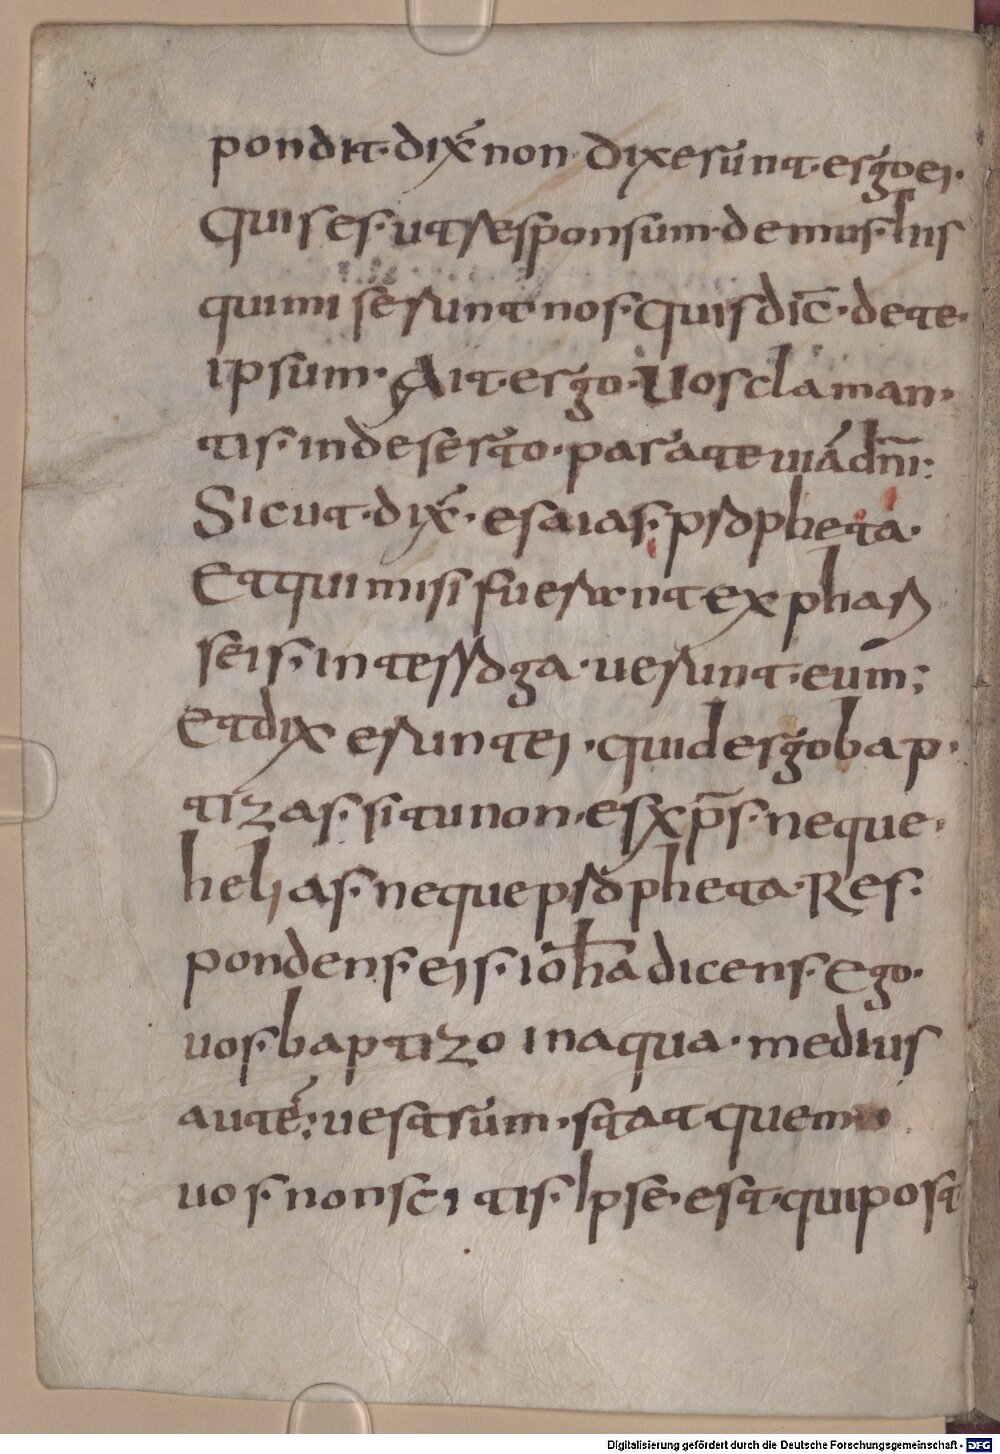 pondit· dix̅ non· Dixerunt· ergo ei·
Quis es· ut responsum· demus· his
qui miserunt· nos· Quis dic̅· de te·
ipsum· Ait· ergo· Vos claman·
tis· in deserto· parate uiā dn̄i:
Sicut· dix̅· esaias· propheta·
Et qui misi fuerunt· ex phari
seis· interroga·uerunt· eum;
Et dixerunt ei· quid ergo bap·
tizas· si tu non· es xp̄s· neque·
helias· neque propheta· Res·
pondens· eis· ioh̄a dicens· Ego·
uos· baptizo in aqua· medius
autē: uestrum· stat· Quem
uos· non scitis· Ipse· est· qui post
Digitalisierung gefördert durch die Deutsche Forschungsgemeinschaft - DFG